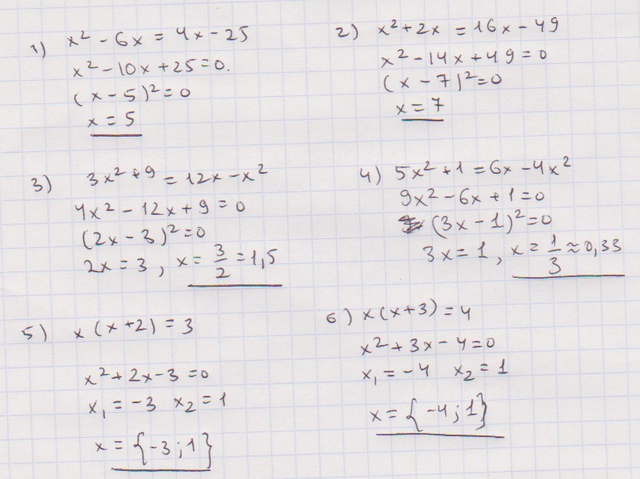 1) x² - 6x = 4x - 25
x² - 10x + 25 = 0.
(x - 5)² = 0
x = 5
2) x² + 2x = 16x - 49
x² - 14x + 49 = 0
(x - 7)² = 0
x = 7
3) 3x² + 9 = 12x - x²
4x² - 12x + 9 = 0
(2x - 3)² = 0
2x = 3, x = 3/2 = 1,5
4) 5x² + 1 = 6x - 4x²
9x² - 6x + 1 = 0
(3x - 1)² = 0
3x = 1, x = 1/3 ≈ 0,33
5) x(x + 2) = 3
x² + 2x - 3 = 0
x₁ = -3 x₂ = 1
x = {-3; 1}
6) x(x + 3) = 4
x² + 3x - 4 = 0
x₁ = -4 x₂ = 1
x = {-4; 1}